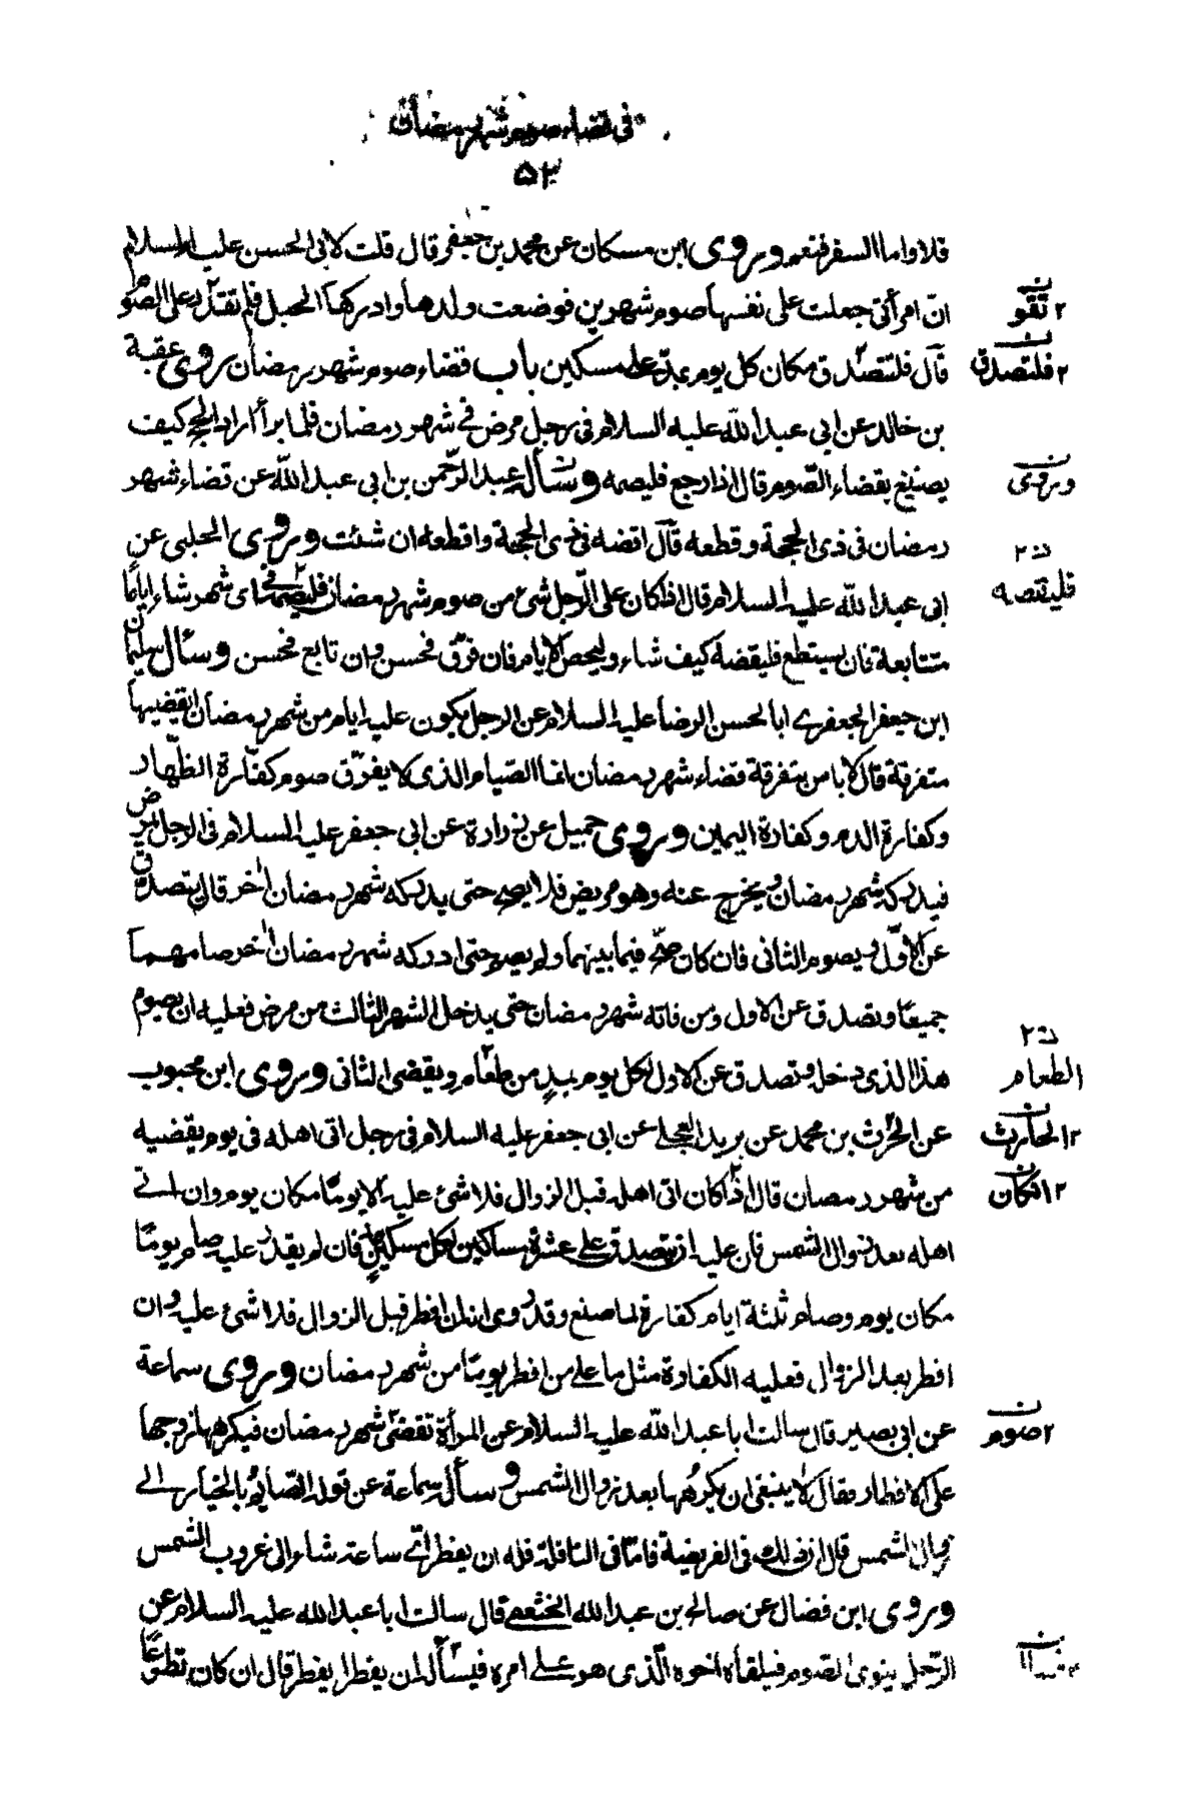 في قضاء صوم شهر رمضان
۵۳
فلا واما السفر فنعم وروى ابن مسكان عن محمد بن جعفر قال قلت لابى الحسن عليه السلام
ان امرأتى جعلت على نفسها صوم شهرين فوضعت ولدها وادركها الحبل فلم تقدر على الصوم
۲ تقو
قال فلتتصدق مكان كل يوم بمد على مسكين باب قضاء صوم شهر رمضان روى عقبة
۲ فلتصدق
بن خالد عن ابى عبد الله عليه السلام فى رجل مرض فى شهر رمضان فلما برأ اراد الحج كيف
يصنع بقضاء الصوم قال اذا رجع فليصمه وسأل عبد الرحمن بن ابى عبد الله عن قضاء شهر
وروى
رمضان فى ذى الحجة وقطعه قال اقضه فى ذى الحجة واقطعه ان شئت وروى الحلبى عن
ابى عبد الله عليه السلام قال اذا كان على الرجل شئ من صوم شهر رمضان فليصمه فى اى شهر شاء اياما
فليقضه
متتابعة فان لم يستطع فليقضه كيف شاء وليحص الايام فان فرق فحسن وان تابع فحسن وسأل سليمان
ابن جعفر الجعفرى ابا الحسن الرضا عليه السلام عن الرجل يكون عليه ايام من شهر رمضان ايقضيها
متفرقة قال لا باس بتفرقة قضاء شهر رمضان انما الصيام الذى لا يفرق صوم كفارة الظهار
وكفارة الدم وكفارة اليمين وروى جميل عن زرارة عن ابى جعفر عليه السلام فى الرجل يمرض
فيدركه شهر رمضان ويخرج عنه وهو مريض فلا يصح حتى يدركه شهر رمضان اخر قال يتصدق
عن الاول ويصوم الثانى فان كان صح فيما بينهما ولم يصم حتى ادركه شهر رمضان اخر صامهما
جميعا وتصدق عن الاول ومن فاته شهر رمضان حتى يدخل الشهر الثالث من مرض فعليه ان يصوم
هذا الذى دخله وتصدق عن الاول لكل يوم بمد من طعام ويقضى الثانى وروى ابن محبوب
الطعام
عن الحرث بن محمد عن بريد العجلى عن ابى جعفر عليه السلام فى رجل اتى اهله فى يوم يقضيه
۲ الحارث
من شهر رمضان قال اذا كان اتى اهله قبل الزوال فلا شئ عليه الا يوما مكان يوم وان اتى
۲ انكان
اهله بعد زوال الشمس فان عليه ان يتصدق على عشرة مساكين لكل مسكين مد فان لم يقدر عليه صام يوما
مكان يوم وصام ثلثة ايام كفارة لما صنع وقد روى انه ان افطر قبل الزوال فلا شئ عليه وان
افطر بعد الزوال فعليه الكفارة مثل ما على من افطر يوما من شهر رمضان وروى سماعة
عن ابى بصير قال سالت ابا عبد الله عليه السلام عن المرأة تقضى شهر رمضان فيكرهها زوجها
۲ صوم
على الافطار فقال لا ينبغى ان يكرهها بعد زوال الشمس وسأل سماعة عن قوله الصائم بالخيار الى
زوال الشمس قال ان ذلك فى الفريضة فاما فى النافلة فله ان يفطر اى ساعة شاء الى غروب الشمس
وروى ابن فضال عن صالح بن عبد الله الخثعمى قال سالت ابا عبد الله عليه السلام عن
الرجل ينوى الصوم فيلقاه اخوه الذى هو على امره فيسأله ان يفطر ايفطر قال ان كان تطوعا